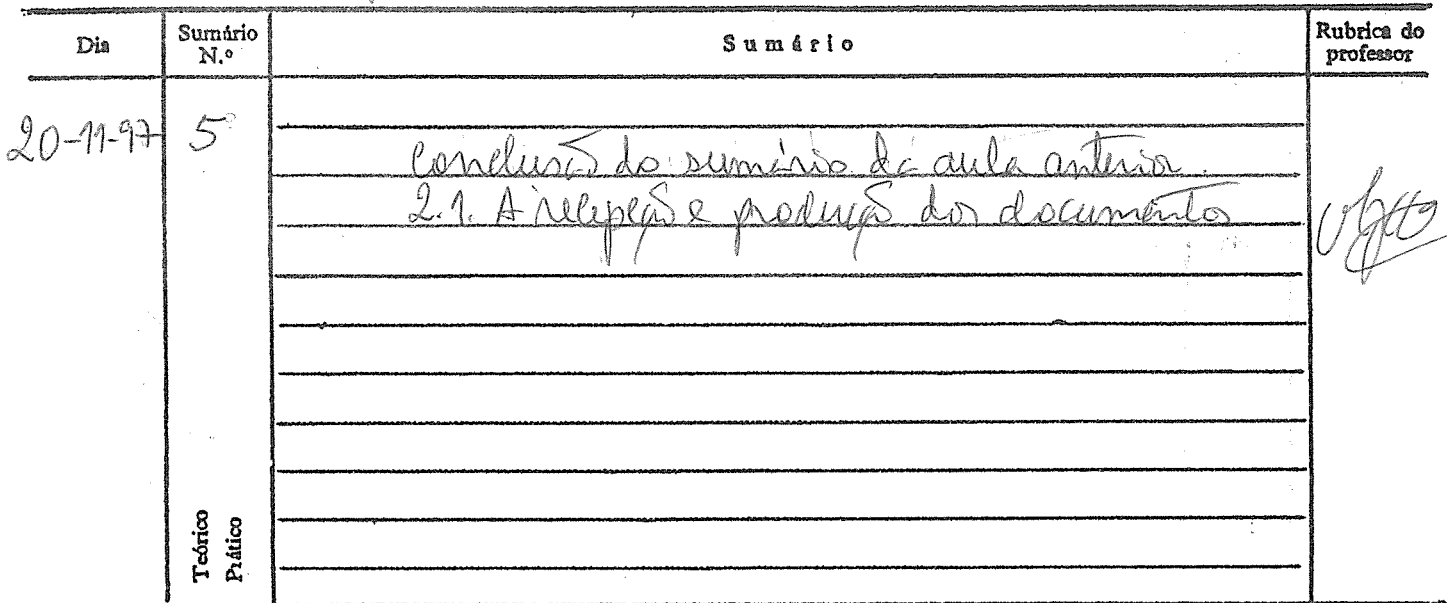 Dia
Sumário N.º
Sumário
Rubrica do professor
20-11-97
5º
Conclusão do sumário da aula anterior.
2.1. A recepção e produção dos documentos
Teórico
Prático